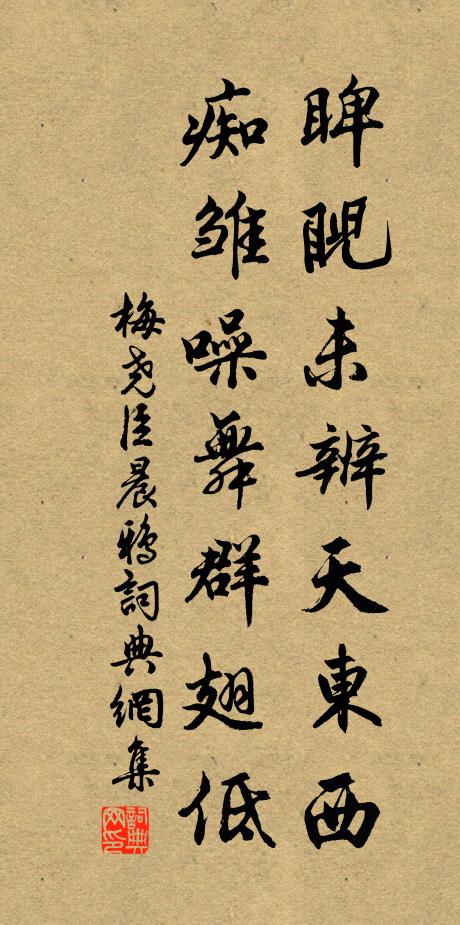 睥睨未辨天東西
痴雏噪舞群翅低
梅堯臣晨鴉詞典網集
詞典網印